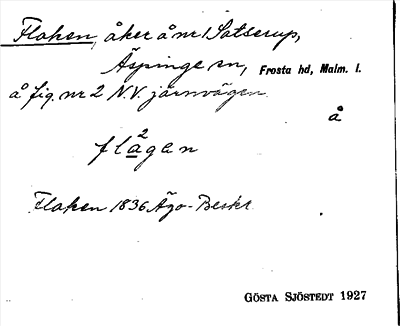 Flaken, åker å nr 1 Satserup,
Äspinge sn, Frosta hd, Malm. l.
å fig. nr 2 N.V. järnvägen.
å
2
flagen
Flaken 1836 Ägo-Beskr.
GÖSTA SJÖSTEDT 1927